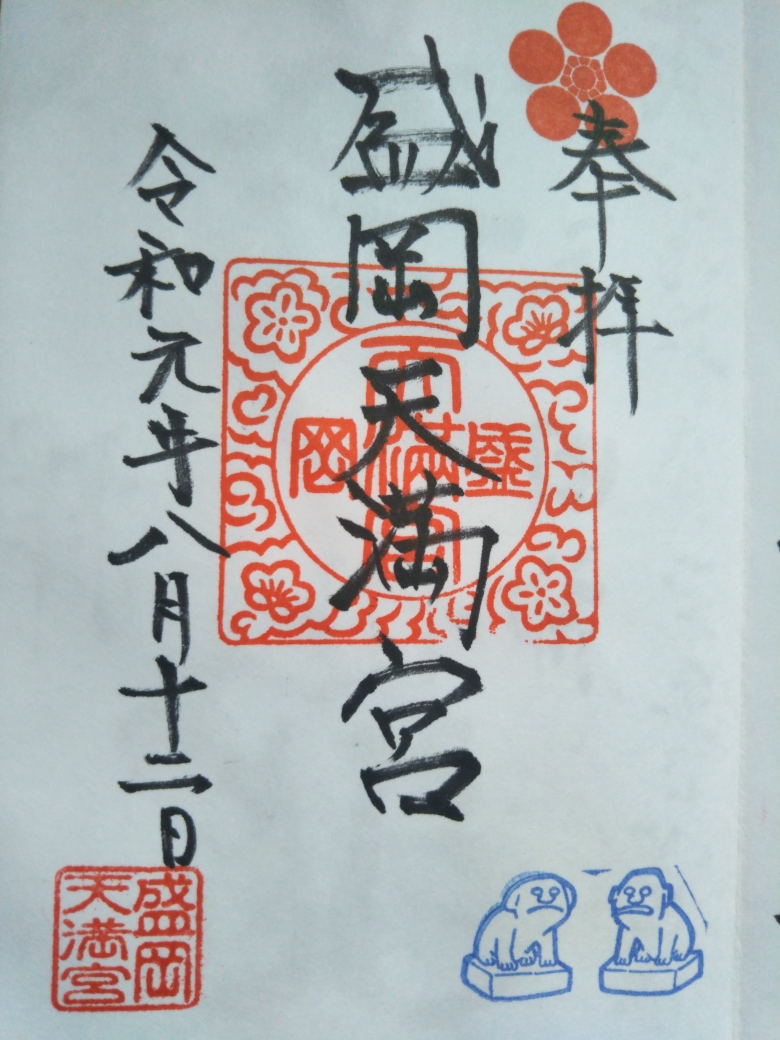 奉拝
盛岡天満宮
令和元年八月十二日
盛岡天満宮
盛岡
天満宮